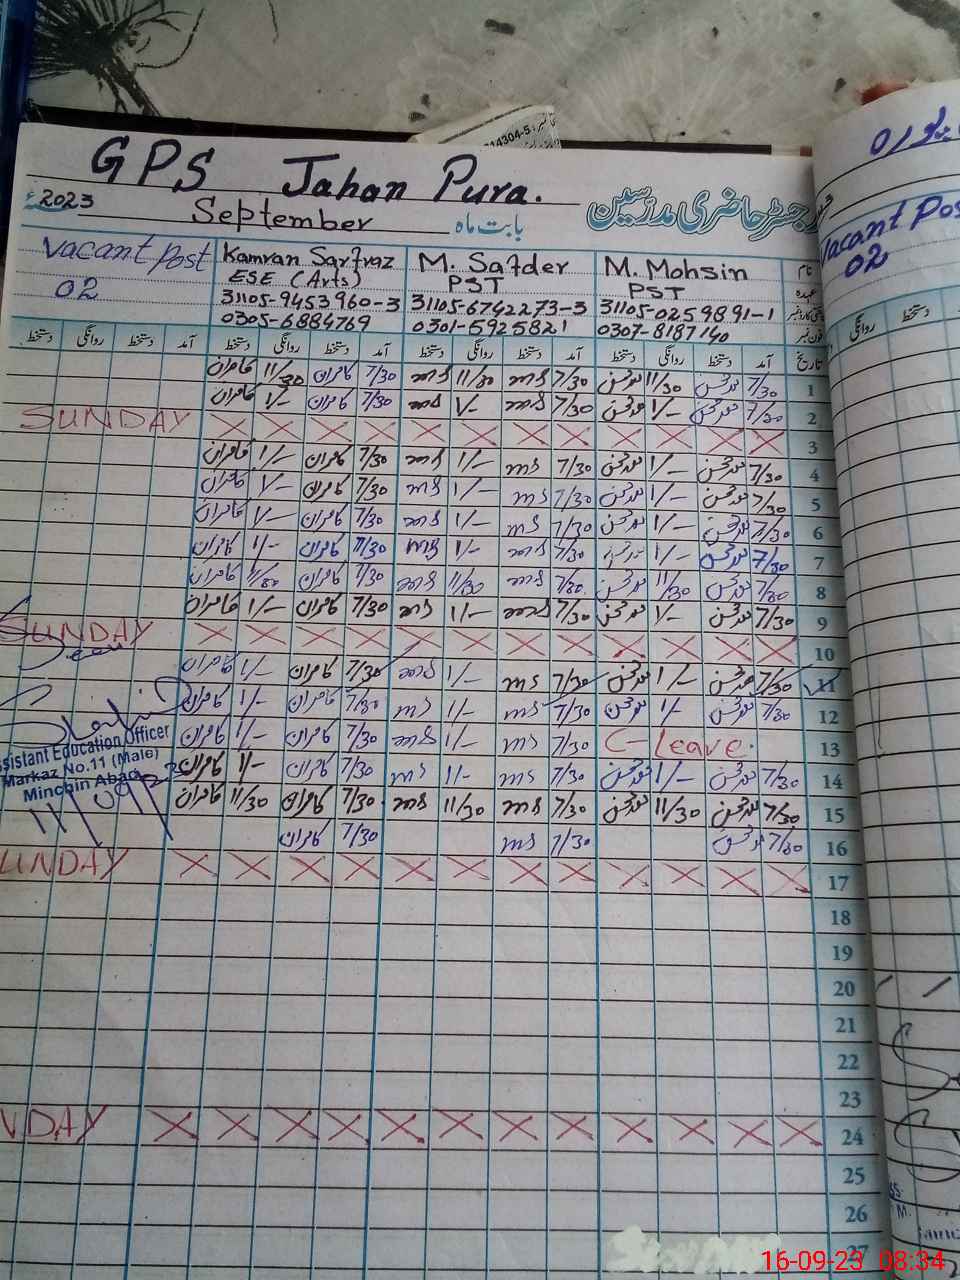 14304-5
GPS Jahan Pura.
2023 September بابت ماہ رجسٹر حاضری مدرسین
Vacant Post Kamran Sarfraz M. Safder M. Mohsin نام
02 ESE (Arts) PST PST عہدہ
31105-9453960-3 31105-6742273-3 31105-0259891-1
0305-6884769 0301-5925821 0307-8187140 فون نمبر
دستخط روانگی دستخط آمد دستخط روانگی دستخط آمد دستخط روانگی دستخط آمد دستخط روانگی دستخط آمد تاریخ
کامران 11/30 کامران 7/30 ms 11/30 ms 7/30 محسن 11/30 محسن 7/30 1
کامران 1/- کامران 7/30 ms 1/- ms 7/30 محسن 1/- محسن 7/30 2
SUNDAY 3
کامران 1/- کامران 7/30 ms 1/- ms 7/30 محسن 1/- محسن 7/30 4
کامران 1/- کامران 7/30 ms 1/- ms 7/30 محسن 1/- محسن 7/30 5
کامران 1/- کامران 7/30 ms 1/- ms 7/30 محسن 1/- محسن 7/30 6
کامران 1/- کامران 7/30 ms 1/- ms 7/30 محسن 1/- محسن 7/30 7
کامران 11/30 کامران 7/30 ms 11/30 ms 7/30 محسن 11/30 محسن 7/30 8
کامران 1/- کامران 7/30 ms 1/- ms 7/30 محسن 1/- محسن 7/30 9
SUNDAY 10
کامران 1/- کامران 7/30 ms 1/- ms 7/30 محسن 1/- محسن 7/30 11
کامران 1/- کامران 7/30 ms 1/- ms 7/30 محسن 1/- محسن 7/30 12
کامران 1/- کامران 7/30 ms 1/- ms 7/30 C-Leave. 13
کامران 1/- کامران 7/30 ms 1/- ms 7/30 محسن 1/- محسن 7/30 14
کامران 11/30 کامران 7/30 ms 11/30 ms 7/30 محسن 11/30 محسن 7/30 15
کامران 7/30 ms 7/30 محسن 7/30 16
UNDAY 17
18
19
20
21
22
23
NDAY 24
25
26
27
ssistant Education Officer
Markaz No.11 (Male)
Minchin Abad
Vacant Pos
02
روانگی دستخط
16-09-23 08:34